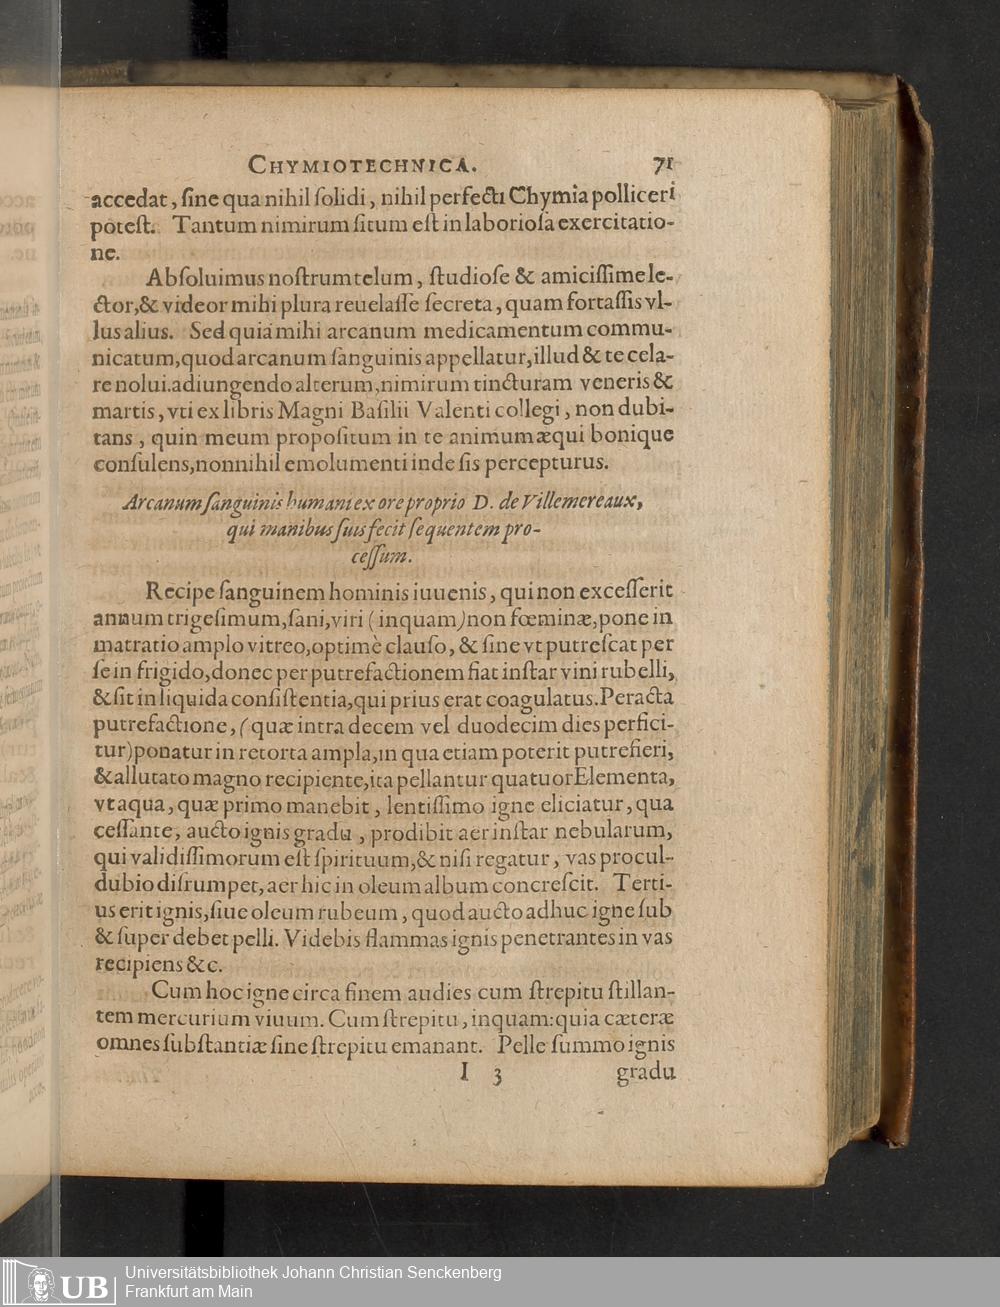 CHYMIOTECHNICA. 71
accedat, ſine qua nihil ſolidi, nihil perfecti Chymia polliceri
poteſt. Tantum nimirum ſitum eſt in laborioſa exercitatio-
ne.
Abſoluimus noſtrum telum, ſtudioſe & amiciſſime le-
ctor, & videor mihi plura reuelaſſe ſecreta, quam fortaſſis vl-
lus alius. Sed quia mihi arcanum medicamentum commu-
nicatum, quod arcanum ſanguinis appellatur, illud & te cela-
re nolui. adiungendo alterum, nimirum tincturam veneris &
martis, vti ex libris Magni Baſilii Valenti collegi, non dubi-
tans, quin meum propoſitum in te animum æqui bonique
conſulens, nonnihil emolumenti inde ſis percepturus.
Arcanum ſanguinis humani ex ore proprio D. de Villemereaux,
qui manibus ſuis fecit ſequentem pro-
ceſſum.
Recipe ſanguinem hominis iuuenis, qui non exceſſerit
annum trigeſimum, ſani, viri (inquam) non fœminæ, pone in
matratio amplo vitreo, optimè clauſo, & ſine vt putreſcat per
ſe in frigido, donec per putrefactionem fiat inſtar vini rubelli,
& ſit in liquida conſiſtentia, qui prius erat coagulatus. Peracta
putrefactione, (quæ intra decem vel duodecim dies perfici-
tur) ponatur in retorta ampla, in qua etiam poterit putrefieri,
& allutato magno recipiente, ita pellantur quatuor Elementa,
vt aqua, quæ primo manebit, lentiſſimo igne eliciatur, qua
ceſſante, aucto ignis gradu, prodibit aer inſtar nebularum,
qui validiſſimorum eſt ſpirituum, & niſi regatur, vas procul-
dubio diſrumpet, aer hic in oleum album concreſcit. Terti-
us erit ignis, ſiue oleum rubeum, quod aucto adhuc igne ſub
& ſuper debet pelli. Videbis flammas ignis penetrantes in vas
recipiens &c.
Cum hoc igne circa finem audies cum ſtrepitu ſtillan-
tem mercurium viuum. Cum ſtrepitu, inquam: quia cæteræ
omnes ſubſtantiæ ſine ſtrepitu emanant. Pelle ſummo ignis
I 3 gradu
UB Universitätsbibliothek Johann Christian Senckenberg
Frankfurt am Main